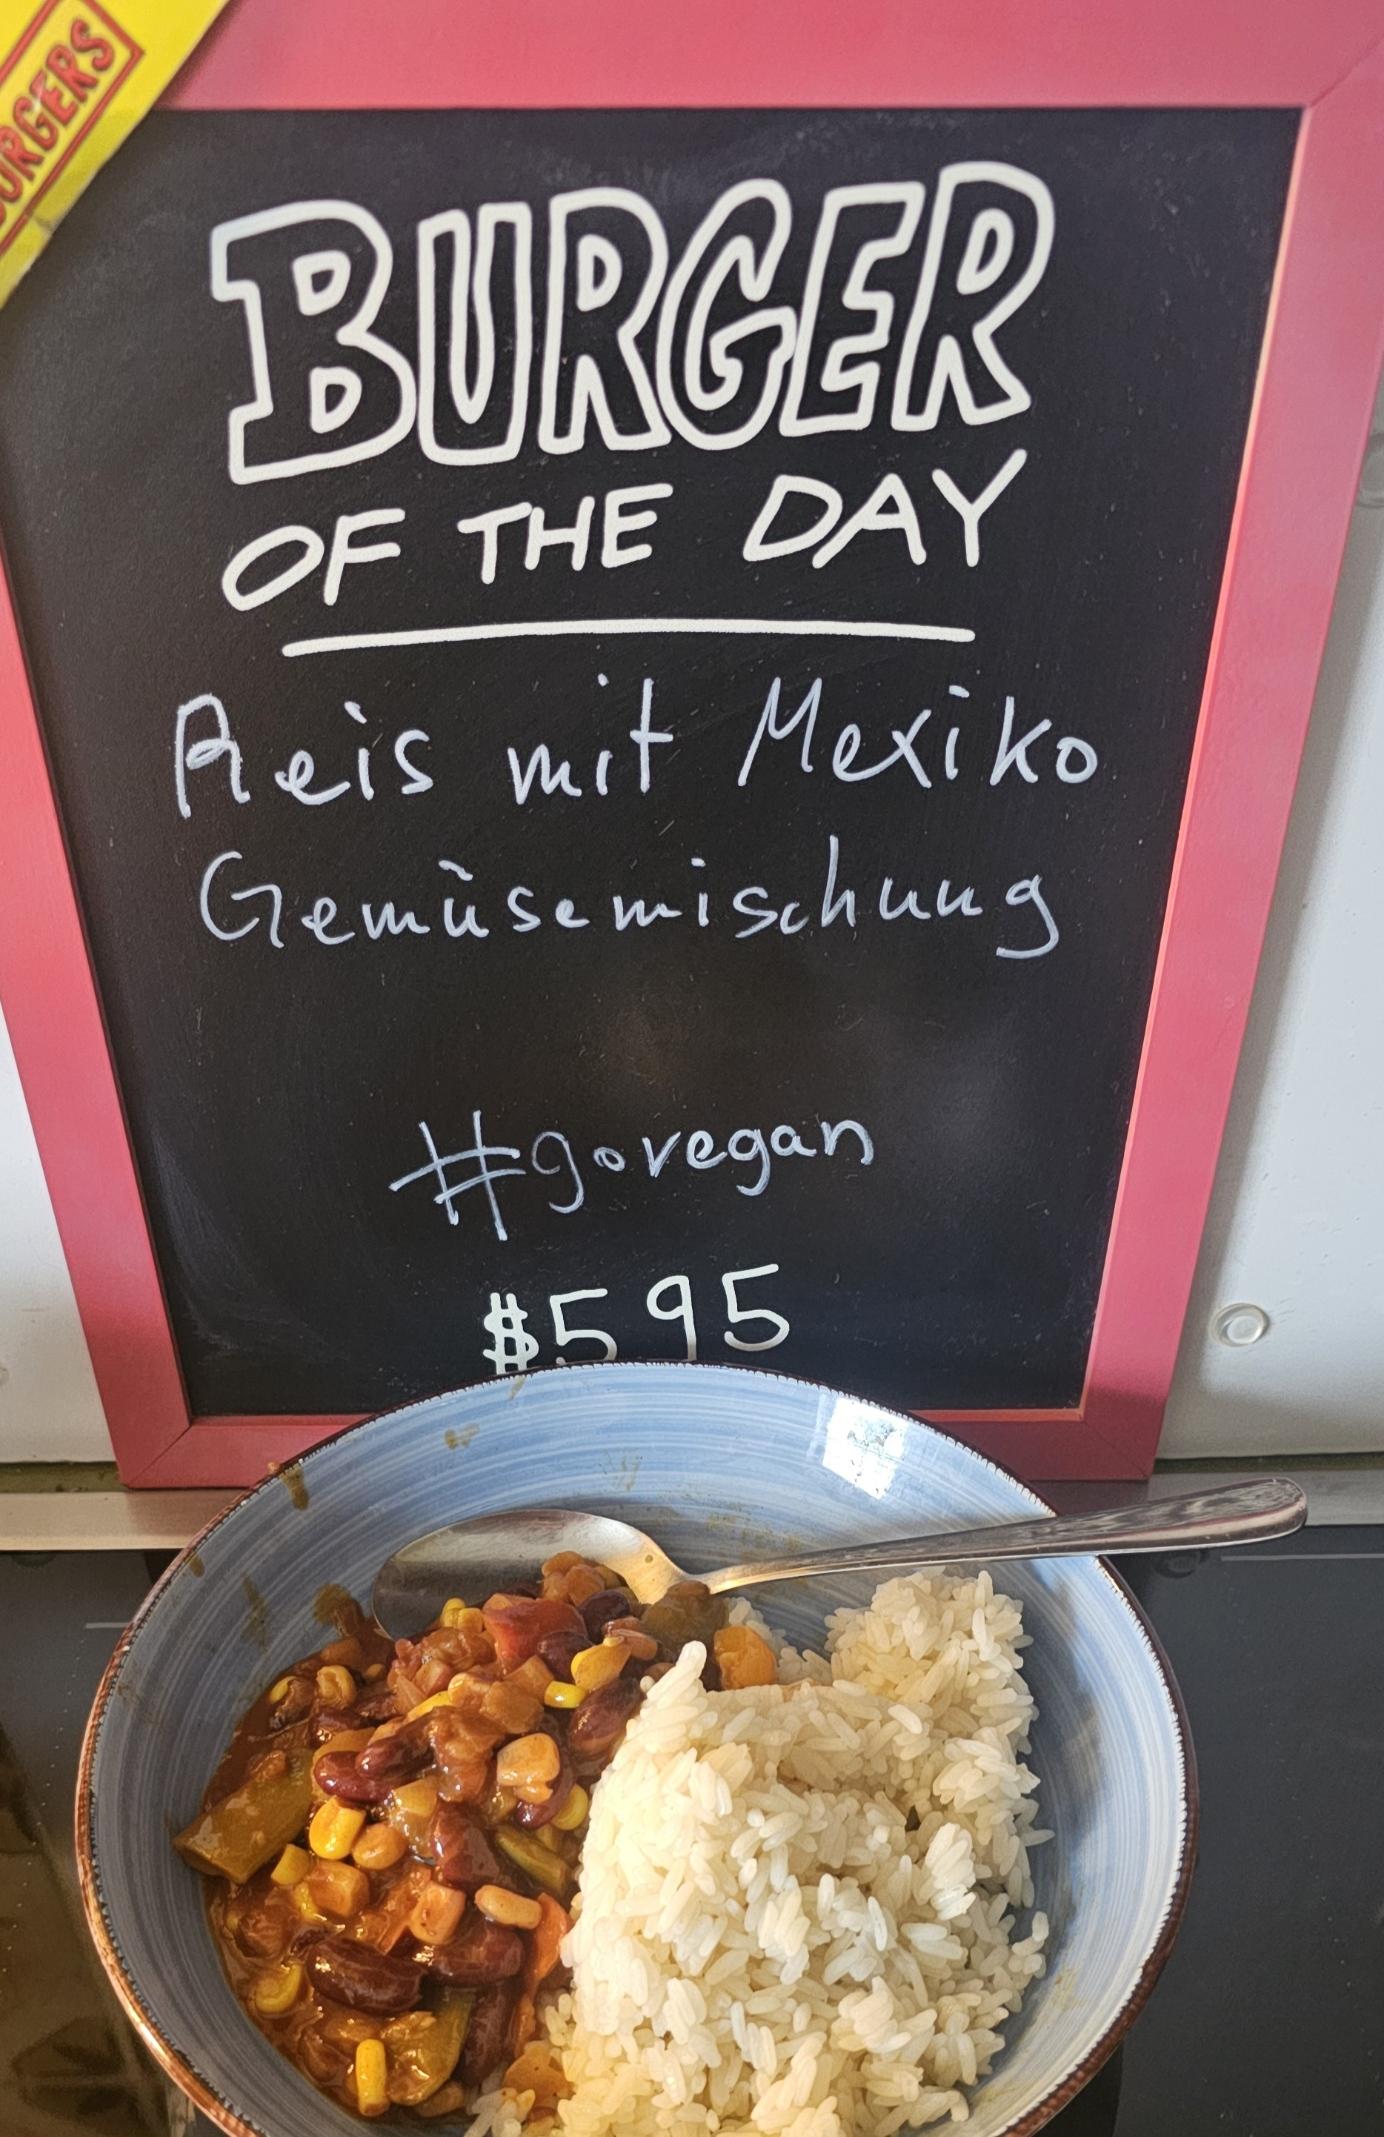 BURGERS
BURGER
OF THE DAY
Reis mit Mexiko
Gemüsemischung
#govegan
$595